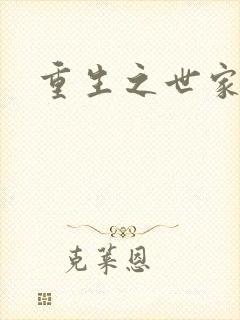 重生之世家
克莱恩